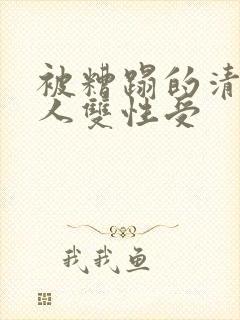 被糟蹋的清
人雙性受
我我鱼